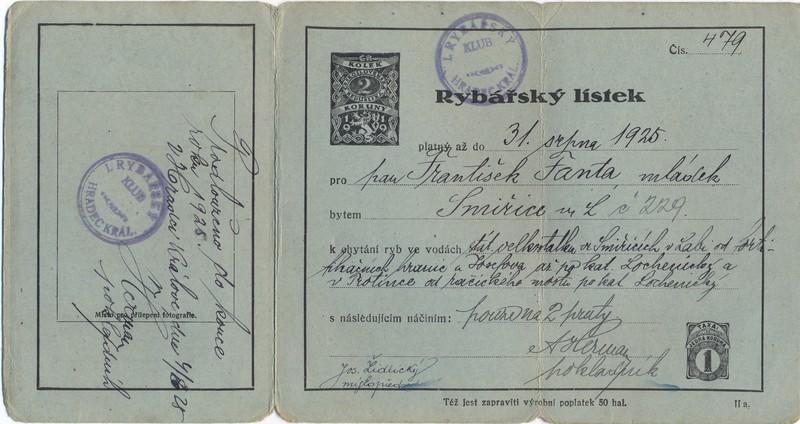 Prodlouženo do konce
roku 1925.
V Hradci Králové dne
Herman
I. RYBÁŘSKÝ
KLUB
HRADEC KRÁL.
Místo pro přilepení fotografie.
I. RYBÁŘSKÝ
KLUB
HRADEC KRÁL.
Čís. 479
KOLEK
ČESKOSLOVENSKÉ
REPUBLIKY
2
KORUNY
1919
Rybářský lístek
platný až do 31. srpna 1925.
pro pan František Fanta mládek
bytem Smiřice n/L č 229.
k chytání ryb ve vodách stát. velkostatku ve Smiřicích v Labi od
hranic u Josefova až po kat. Lochenický a
v Trotince od račického mostu po kat. Lochenický
s následujícím náčiním: pouze na 2 pruty
A Herman
pokladník
Jos. Židlický
místopředs
TAXA
JEDNA KORUNA
1
Též jest zapraviti výrobní poplatek 50 hal.
II a.